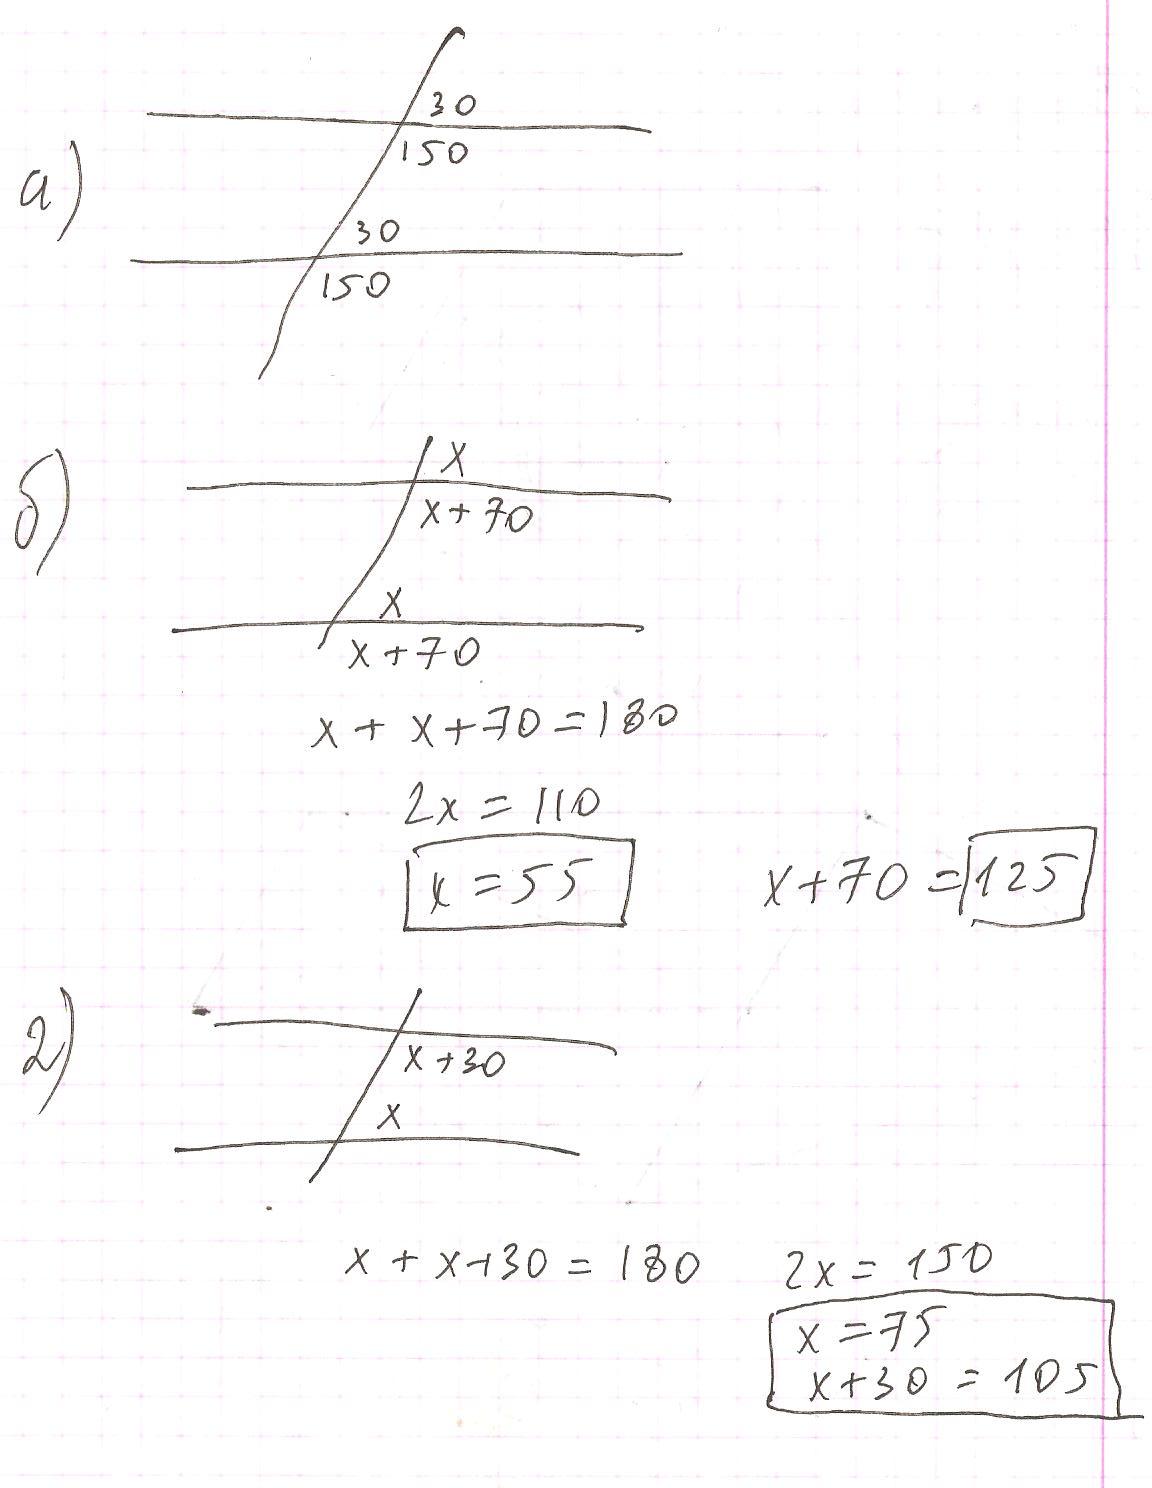 а)
30
150
30
150
б)
x
x + 70
x
x + 70
x + x + 70 = 180
2x = 110
x = 55
x + 70 = 125
2)
x + 30
x
x + x + 30 = 180
2x = 150
x = 75
x + 30 = 105